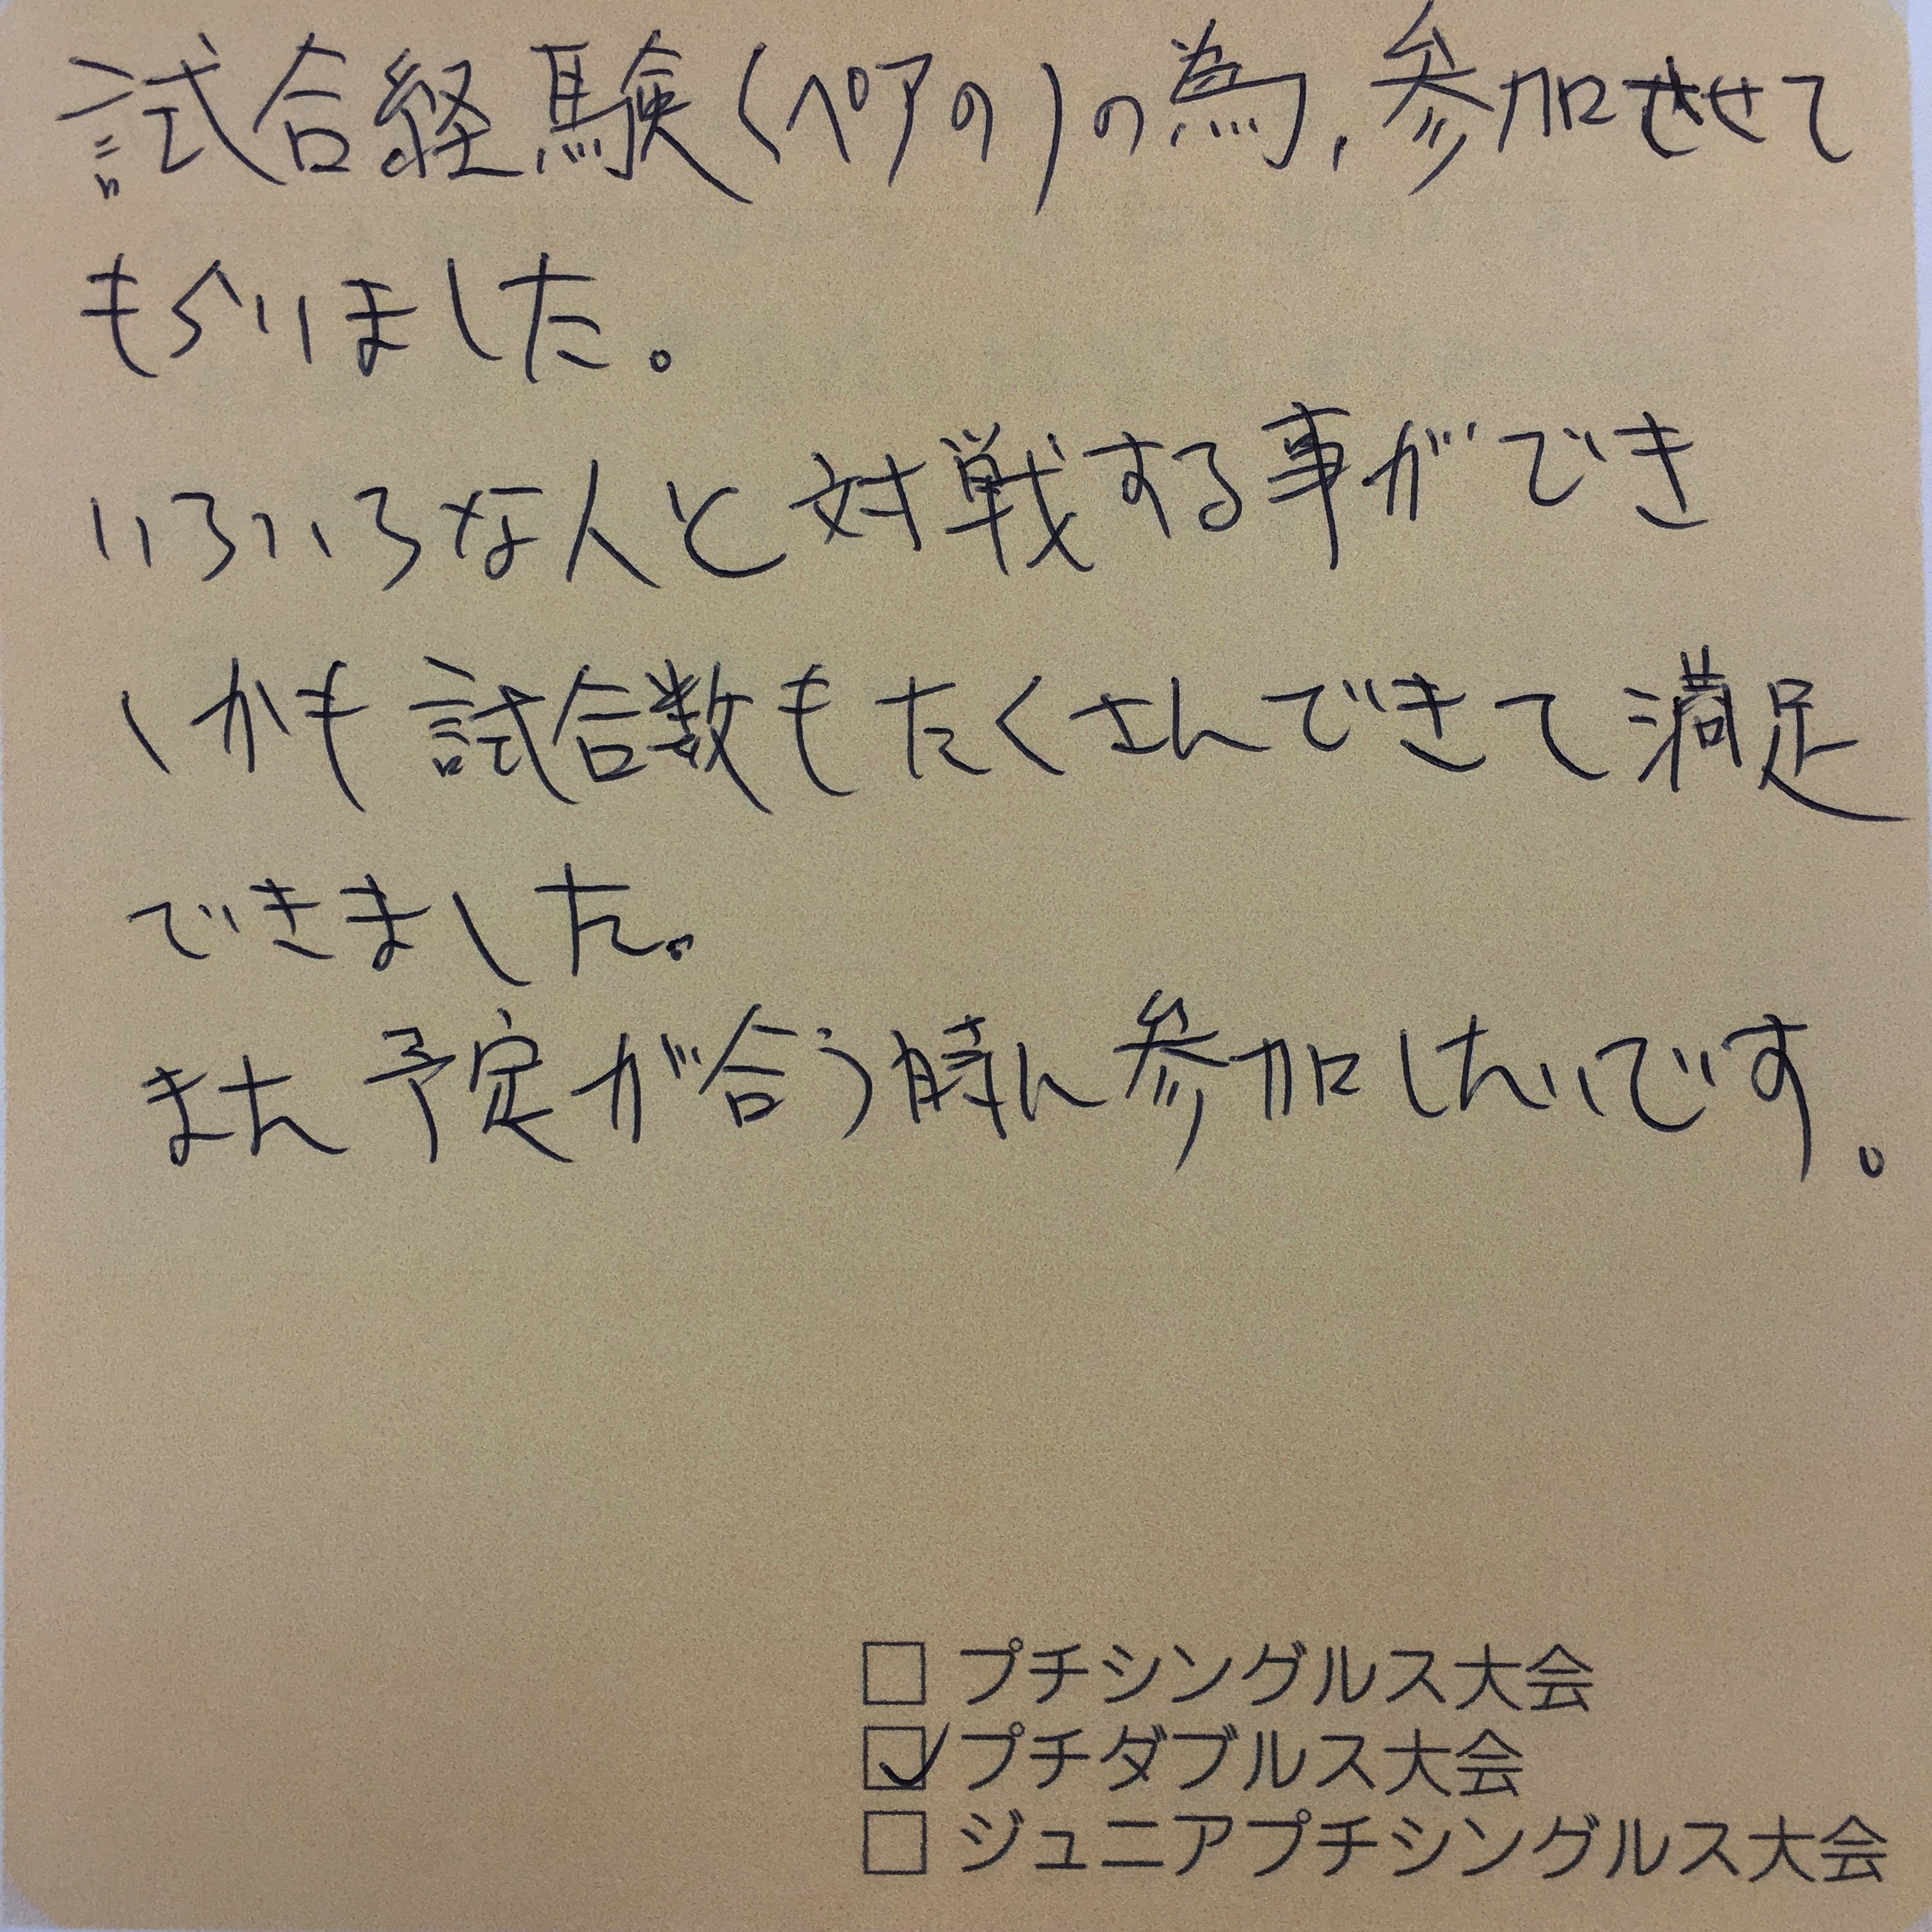 試合経験(ペアの)の為、参加させて
もらいました。
いろいろな人と対戦する事ができ
しかも試合数もたくさんできて満足
できました。
また予定が合う時に参加したいです。
□ プチシングルス大会
☑ プチダブルス大会
□ ジュニアプチシングルス大会